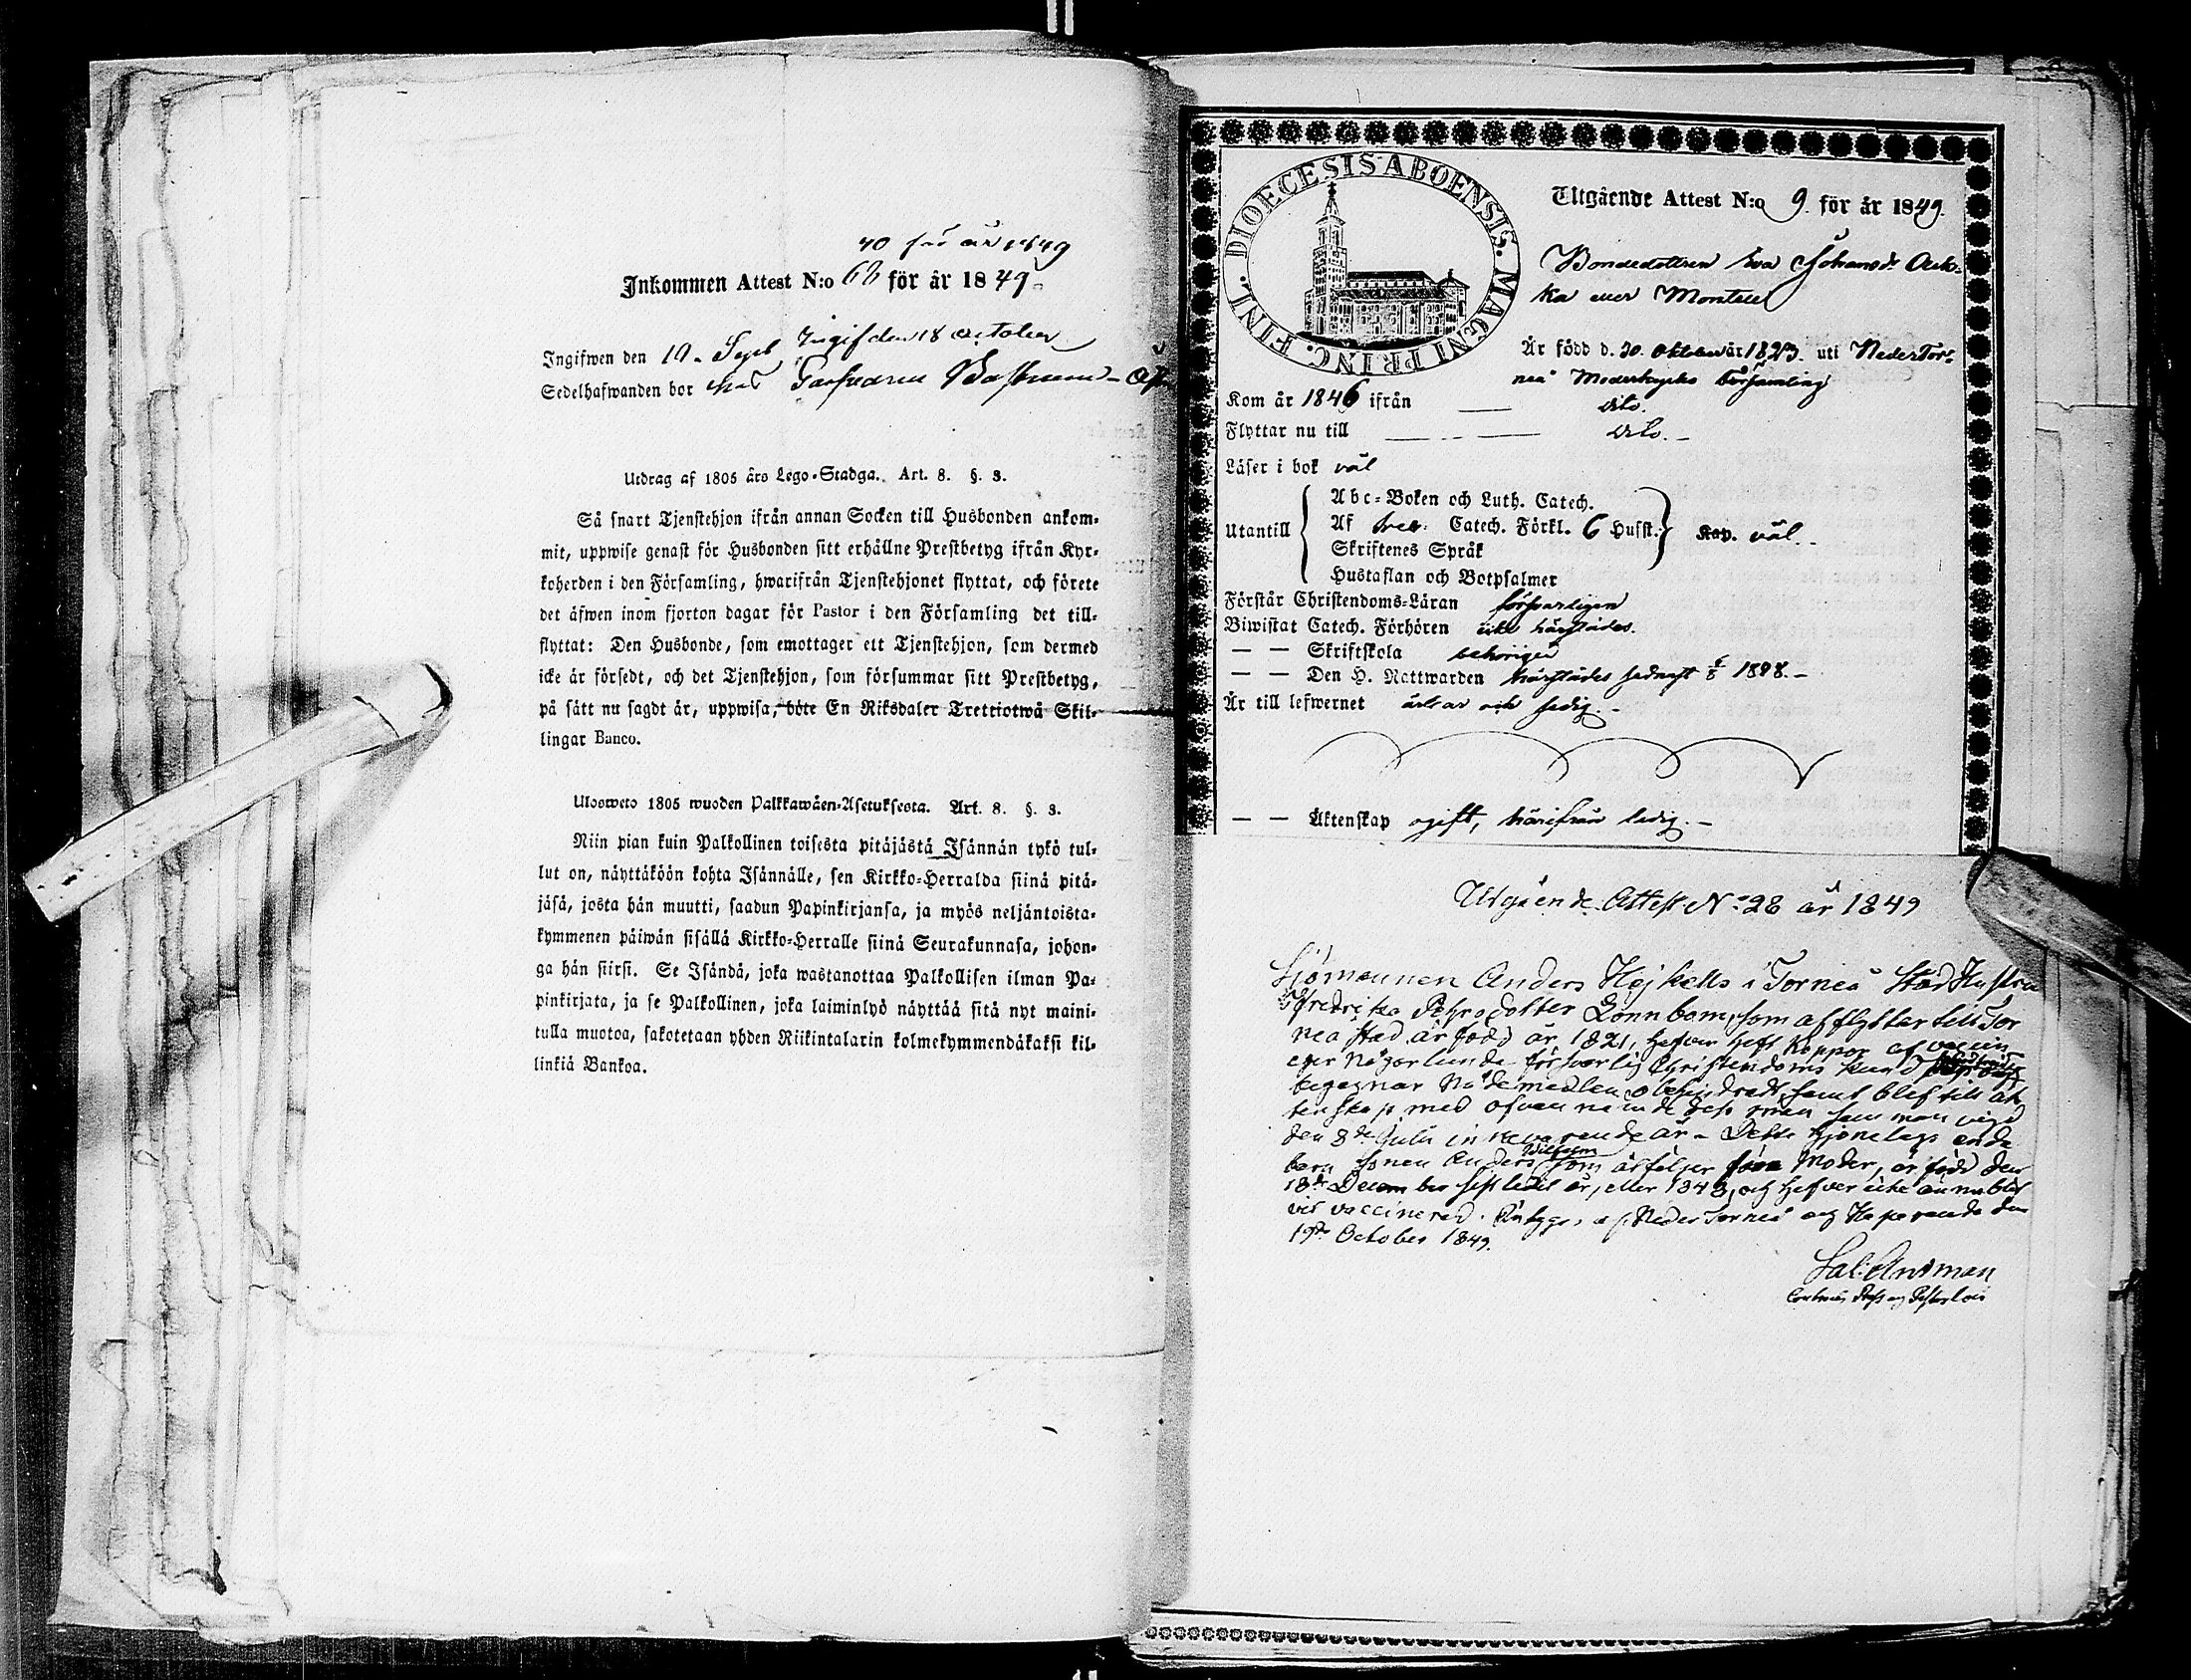 40 för år 1849
Inkommen Attest N:o 68 för år 1849.
Ingifwen den 10. Sept Ingif den 18 October
Sedelhafwanden bor hos
Utdrag af 1805 års Lego-Stadga. Art. 8. §. 3.
Så snart Tjenstehjon ifrån annan Socken till Husbonden ankom-
mit, uppwise genast för Husbonden sitt erhållne Prestbetyg ifrån Kyr-
koherden i den Församling, hwarifrån Tjenstehjonet flyttat, och förete
det äfwen inom fjorton dagar för Pastor i den Församling det till-
flyttat: Den Husbonde, som emottager ett Tjenstehjon, som dermed
icke är försedt, och det Tjenstehjon, som försummar sitt Prestbetyg,
på sätt nu sagdt är, uppwisa, böte En Riksdaler Trettiotwå Skil-
lingar Banco.
Ulosweto 1805 wuoden Palkkawäen-Asetuksesta. Art. 8. §. 3.
Niin pian kuin Palkollinen toisesta pitäjästä Isännän tykö tul-
lut on, näyttäköön kohta Isännälle, sen Kirkko-Herralda siinä pitä-
jäsä, josta hän muutti, saadun Papinkirjansa, ja myös neljäntoista-
kymmenen päiwän sisällä Kirkko-Herralle siinä Seurakunnasa, johon-
ga hän siirsi. Se Isändä, joka wastanottaa Palkollisen ilman Pa-
pinkirjata, ja se Palkollinen, joka laiminlyö näyttää sitä nyt maini-
tulla muotoa, sakotetaan yhden Riikintalarin kolmekymmendäkaksi kil-
linkiä Bankoa.
DIOECESIS ABOENSIS. MAGNI PRINC. FINL.
Utgående Attest N:o 9. för år 1849.
Bondedottren Eva Johansdr
ka eller Montell
Är född d. 30. Oktober år 1823. uti Neder Tor-
neå Moderkyrko församling
Kom år 1846 ifrån dito.
Flyttar nu till dito.
Läser i bok väl
Utantill
Abc-Boken och Luth. Catech.
Af Sveb. Catech. Förkl. 6 Husst. Kap. väl.
Skriftenes Språk
Hustaflan och Botpsalmer
Förstår Christendoms-Läran försvarligen
Biwistat Catech. Förhören icke härstädes.
— — Skriftskola behörigen
— — Den H. Nattwarden härstädes sednast 1848.
Är till lefwernet ärbar och sedig.
— — Äktenskap ogift, härifrån ledig.
Utgående Attest N:o 28 år 1849
Sjömannen Anders Hejkells i Torneå Stad Hustru
Fredrika Petersdotter Lönnbom, som afflyttar till Tor
neå stad, är född år 1821, hafver haft Koppor
eger någorlunda försvarlig Christendoms kund
begagnar Nådemedlen obehindradt, samt blef till äk
tenskap med ofvannämnde dess man sam man vigd
den 8de Julii innevarande år. Dess hjonelags enda
barn Sonen Anders Wilhelm som åtföljer Moder, är född den
18de December sistledit år, eller 1848, och hafver icke ännu blif
vit vaccinerad. Betygar af Neder Torneå och Haparanda den
19de October 1849.
Sal: Antman